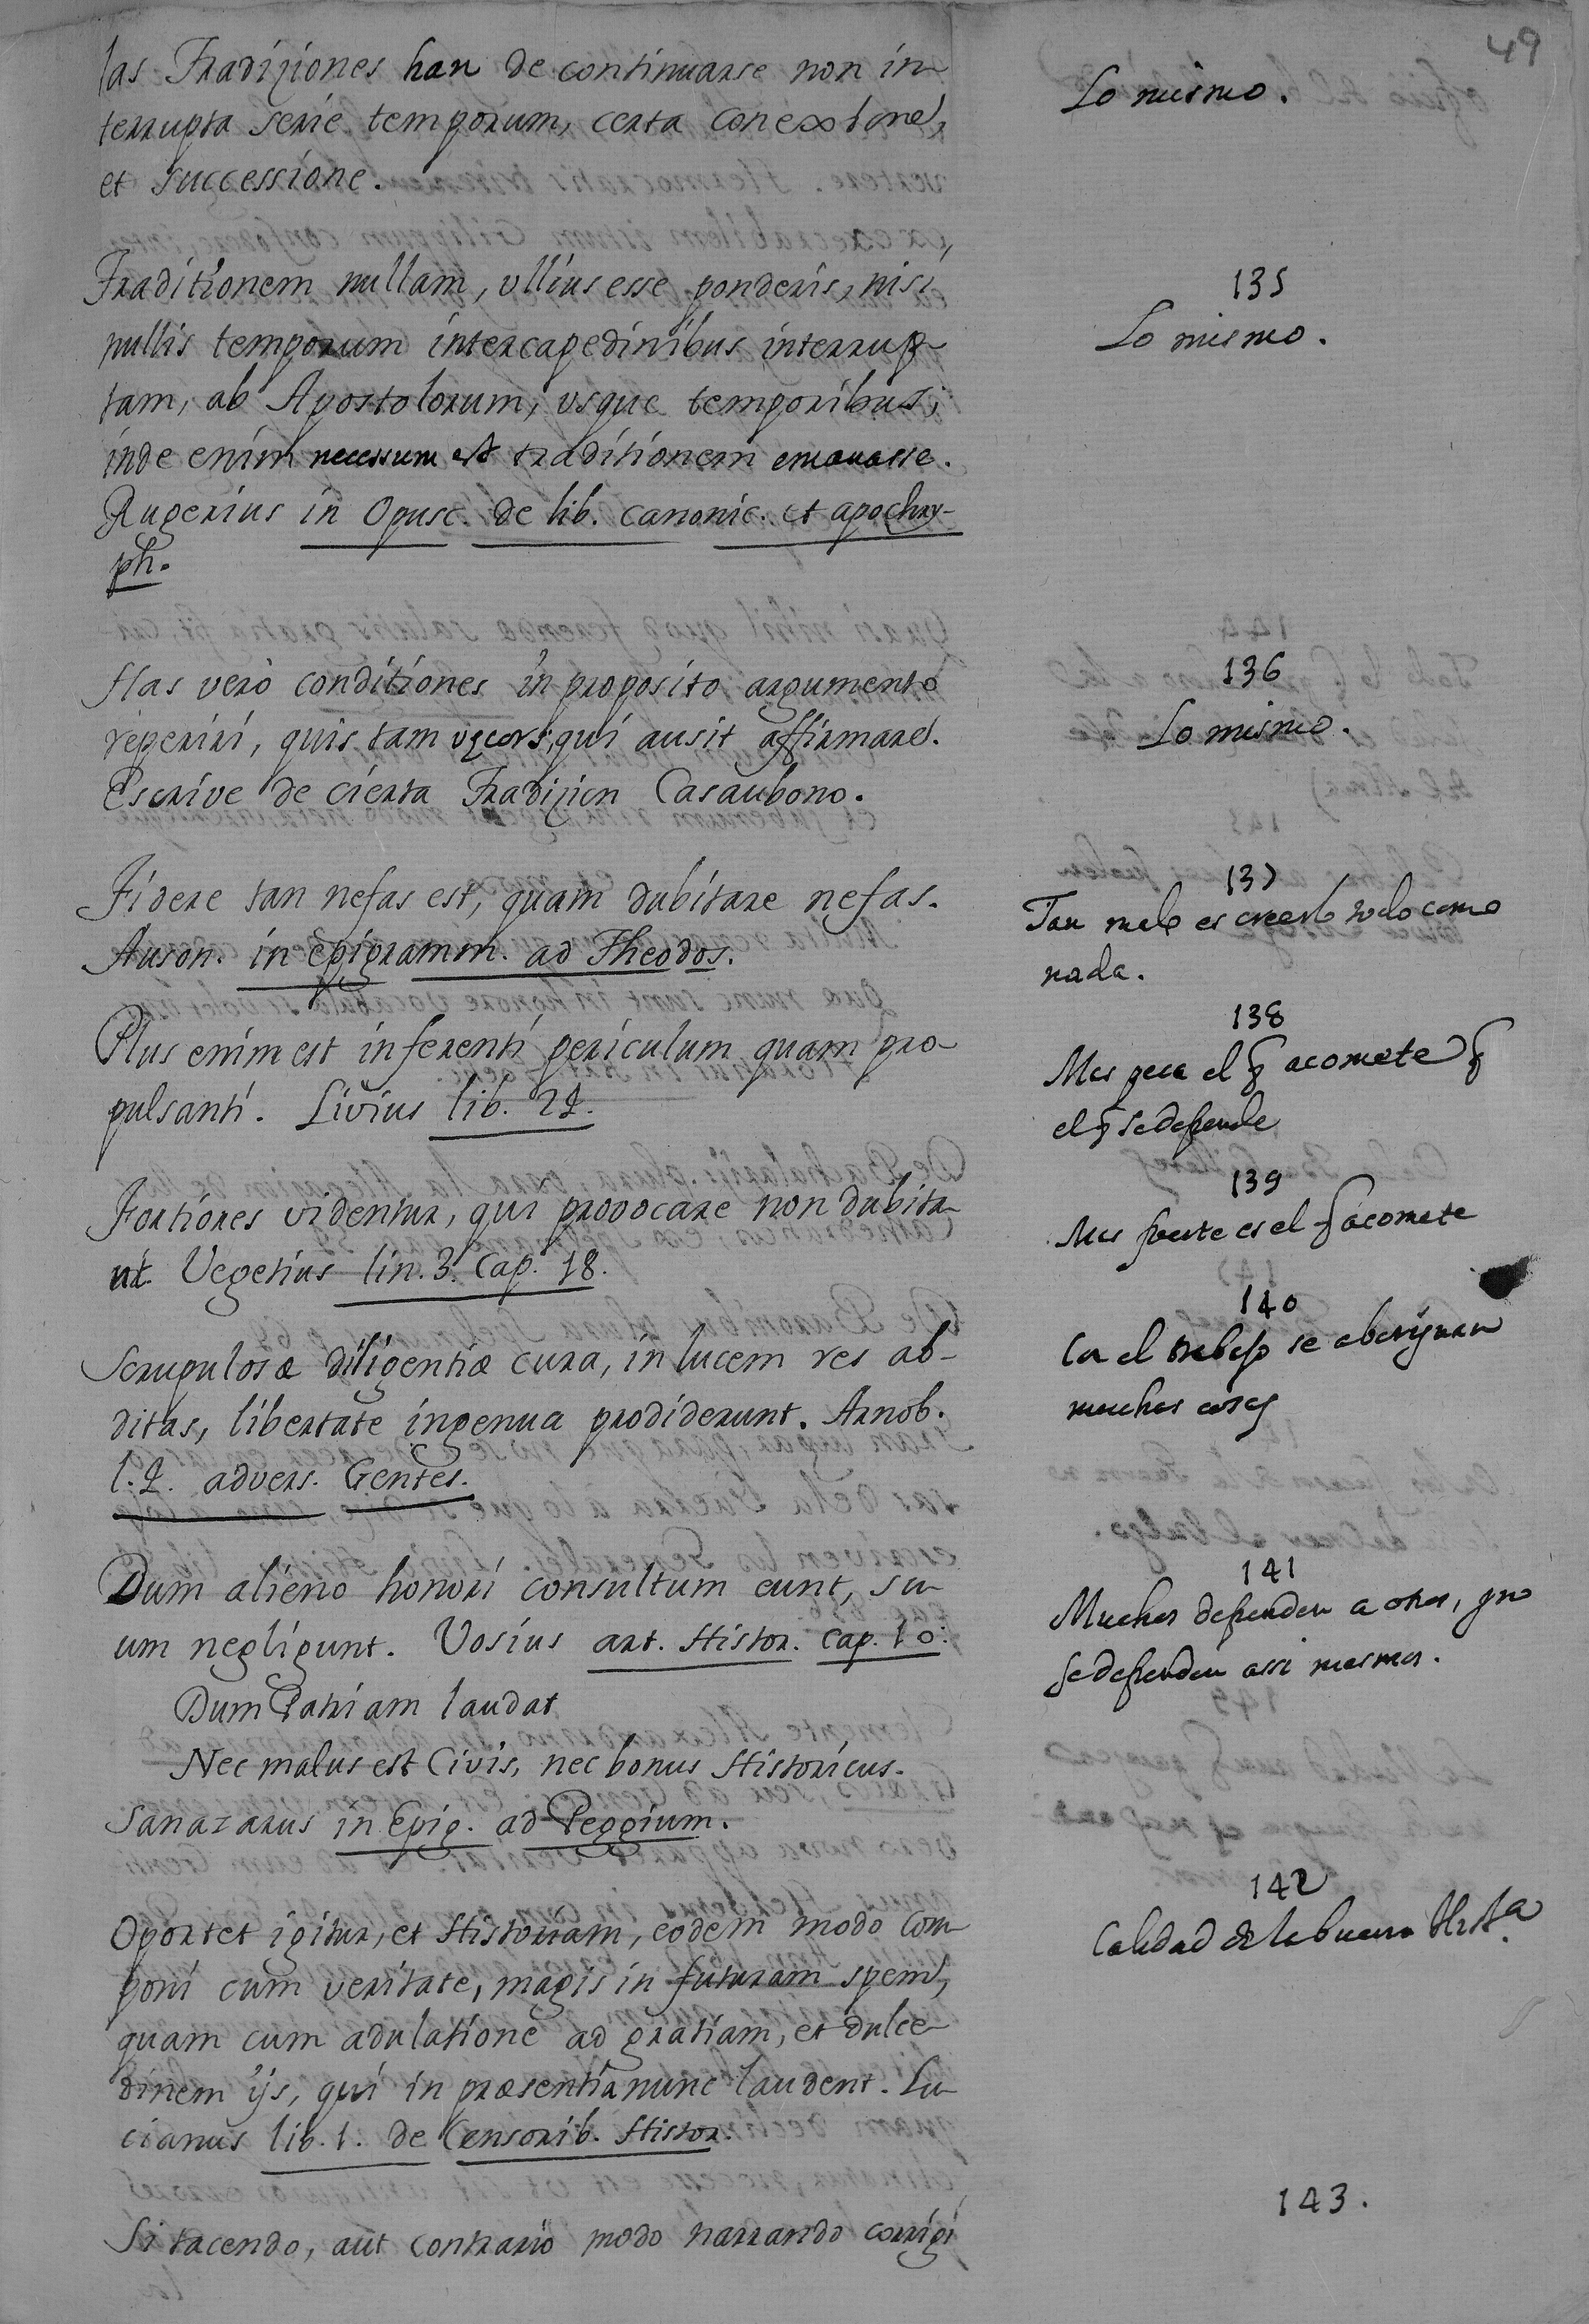 49
las Tradiziones han de continuarse non in-
terrupta serie temporum, certa conexione,
et successione.
Lo mismo.
Traditionem nullam, ullius esse ponderis, nisi
nullis temporum intercapedinibus interrup-
tam, ab Apostolorum, usque temporibus;
inde enim necessum est traditionem emanasse.
Rugerius in Opusc. de lib. canonic. et apochry-
ph.
135
Lo mismo.
Has verò conditiones in proposito argumento
reperiri, quis tam vecors, qui ausit affirmare.
Escrive de cierta Tradizion Casaubono.
136
Lo mismo.
Fidere tan nefas est, quam dubitare nefas.
Auson. in epigramm. ad Theodos.
137
Tan malo es creerlo todo como
nada.
Plus enim est inferenti periculum quam pro-
pulsanti. Livius lib. 21.
138
Mas peca el q acomete q
el q se defiende
Fortiores videntur, qui provocare non dubita-
nt. Vegetius lin. 3. Cap. 18.
139
Mas fuerte es el q acomete
Scrupulosæ diligentiæ cura, in lucem res ab-
ditas, libertate ingenua prodiderunt. Arnob.
l. 2. advers. Gentes.
140
Con el trabajo se aberiguan
muchas cosas
Dum alieno honori consultum eunt, su-
um negligunt. Vosius art. Histor. cap. 10.
Dum Patriam laudat
Nec malus est Civis, nec bonus Historicus.
Sanazarus in Epig. ad Poggium.
141
Muchos defienden a otros, y no
se defienden assi mesmos.
Oportet igitur, et Historiam, eodem modo com-
poni cum veritate, magis in futuram spem,
quam cum adulatione ad gratiam, et dulce-
dinem ijs, qui in præsentia nunc laudent. Lu-
cianus lib. 1. de Censorib. Histor.
142
Calidad de la buena Hista.
Si tacendo, aut contrario modo narrando corrigi
143.